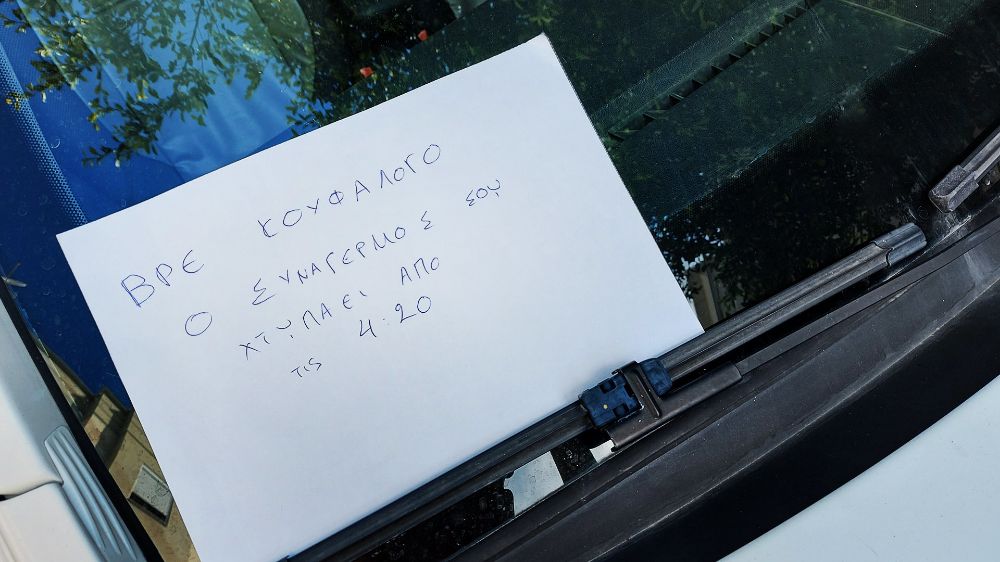 ΒΡΕ ΚΟΥΦΑΛΟΓΟ
Ο ΣΥΝΑΓΕΡΜΟΣ ΣΟΥ
ΧΤΥΠΑΕΙ ΑΠΟ
τις 4:20